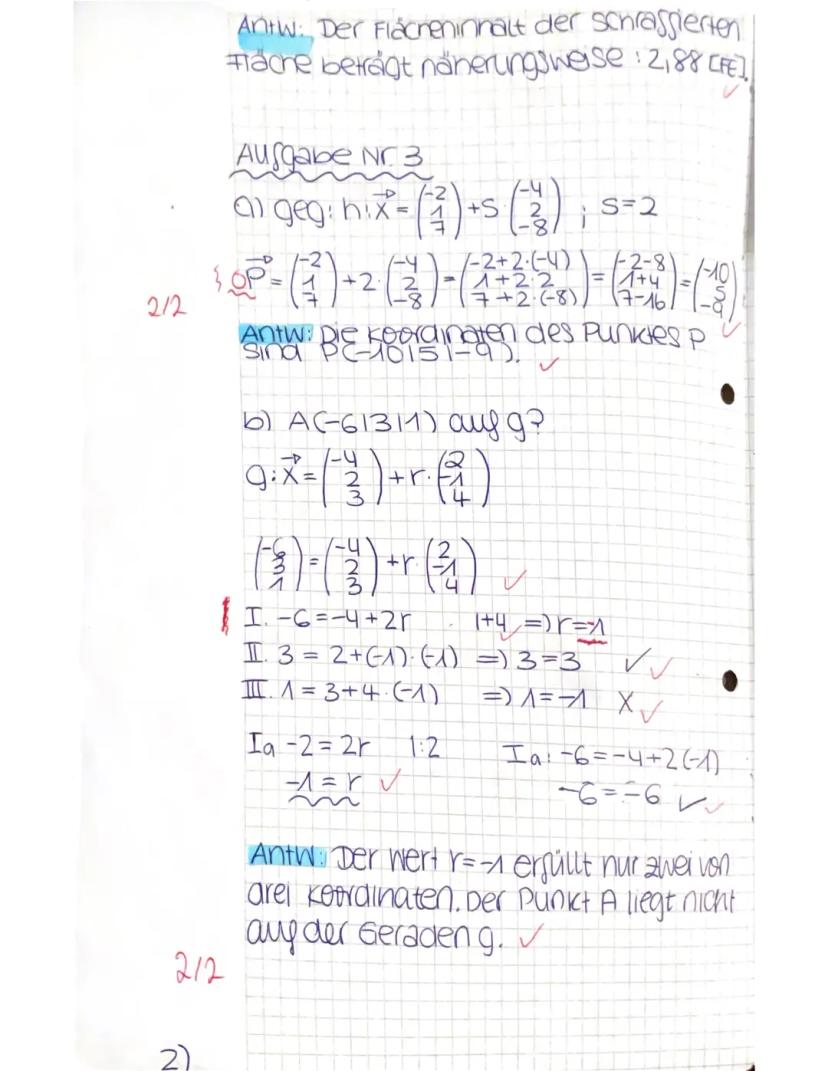 Antw: Der Flächeninhalt der schraffierten
Fläche beträgt näherungsweise : 2,88 [FE].
✓
Aufgabe Nr. 3
a) geg: h: x⃗ = (-2 1 7) + s (-4 2 -8) ; s=2
OP⃗ = (-2 1 7) + 2· (-4 2 -8) = (-2+2·(-4) 1+2·2 7+2·(-8)) = (-2-8 1+4 7-16) = (-10 5 -9)
2/2
Antw: Die Koordinaten des Punktes P ✓
sind P(-10|5|-9). ✓
b) A(-6|3|1) auf g?
g: x⃗ = (-4 2 3) + r· (2 -1 4)
(-6 3 1) = (-4 2 3) + r· (2 -1 4) ✓
I. -6 = -4+2r |+4 ✓ => r=-1
II. 3 = 2+(-1)·(-1) => 3=3 ✓ ✓
III. 1 = 3+4·(-1) => 1=-1 X ✓
Ia -2 = 2r |:2 Ia: -6=-4+2(-1)
-1 = r ✓ -6=-6 ✓ ✓
Antw: Der Wert r=-1 erfüllt nur zwei von
drei Koordinaten. Der Punkt A liegt nicht
auf der Geraden g. ✓
2/2
2)